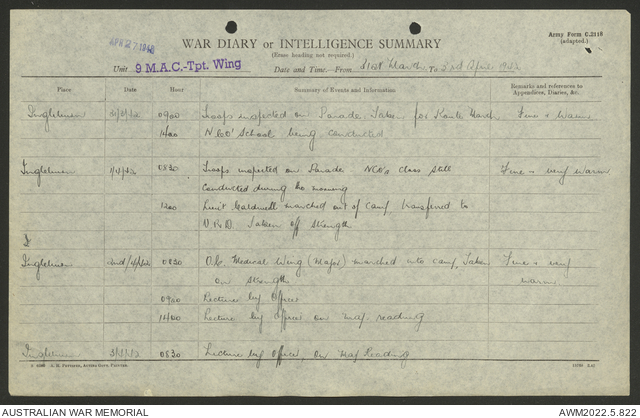 APR 27 1948
WAR DIARY or INTELLIGENCE SUMMARY
(Erase heading not required.)
Army Form C.2118
(adapted.)
Unit 9 M.A.C.-Tpt. Wing Date and Time—From 31st March To 3rd April 1942
Place Date Hour Summary of Events and Information Remarks and references to
Appendices, Diaries, &c.
Ingleburn 31/3/42 0900 Troops inspected on Parade Taken for Route March Fine & Warm
1400 NCO' School being conducted
Ingleburn 1/4/42 0830 Troops inspected on Parade NCO's class still Fine & very warm
conducted during the morning
Lieut marched out of camp, transferred to
Taken off Strength
Ingleburn 2nd/4/42 0830 O.C. Medical Wing (Major) marched into camp, Taken Fine & very
on Strength warm
0900 Lecture by Officer
1400 Lecture by officer on map reading
Ingleburn 3/4/42 0830 Lecture by Officer, on Map Reading
AUSTRALIAN WAR MEMORIAL AWM2022.5.822